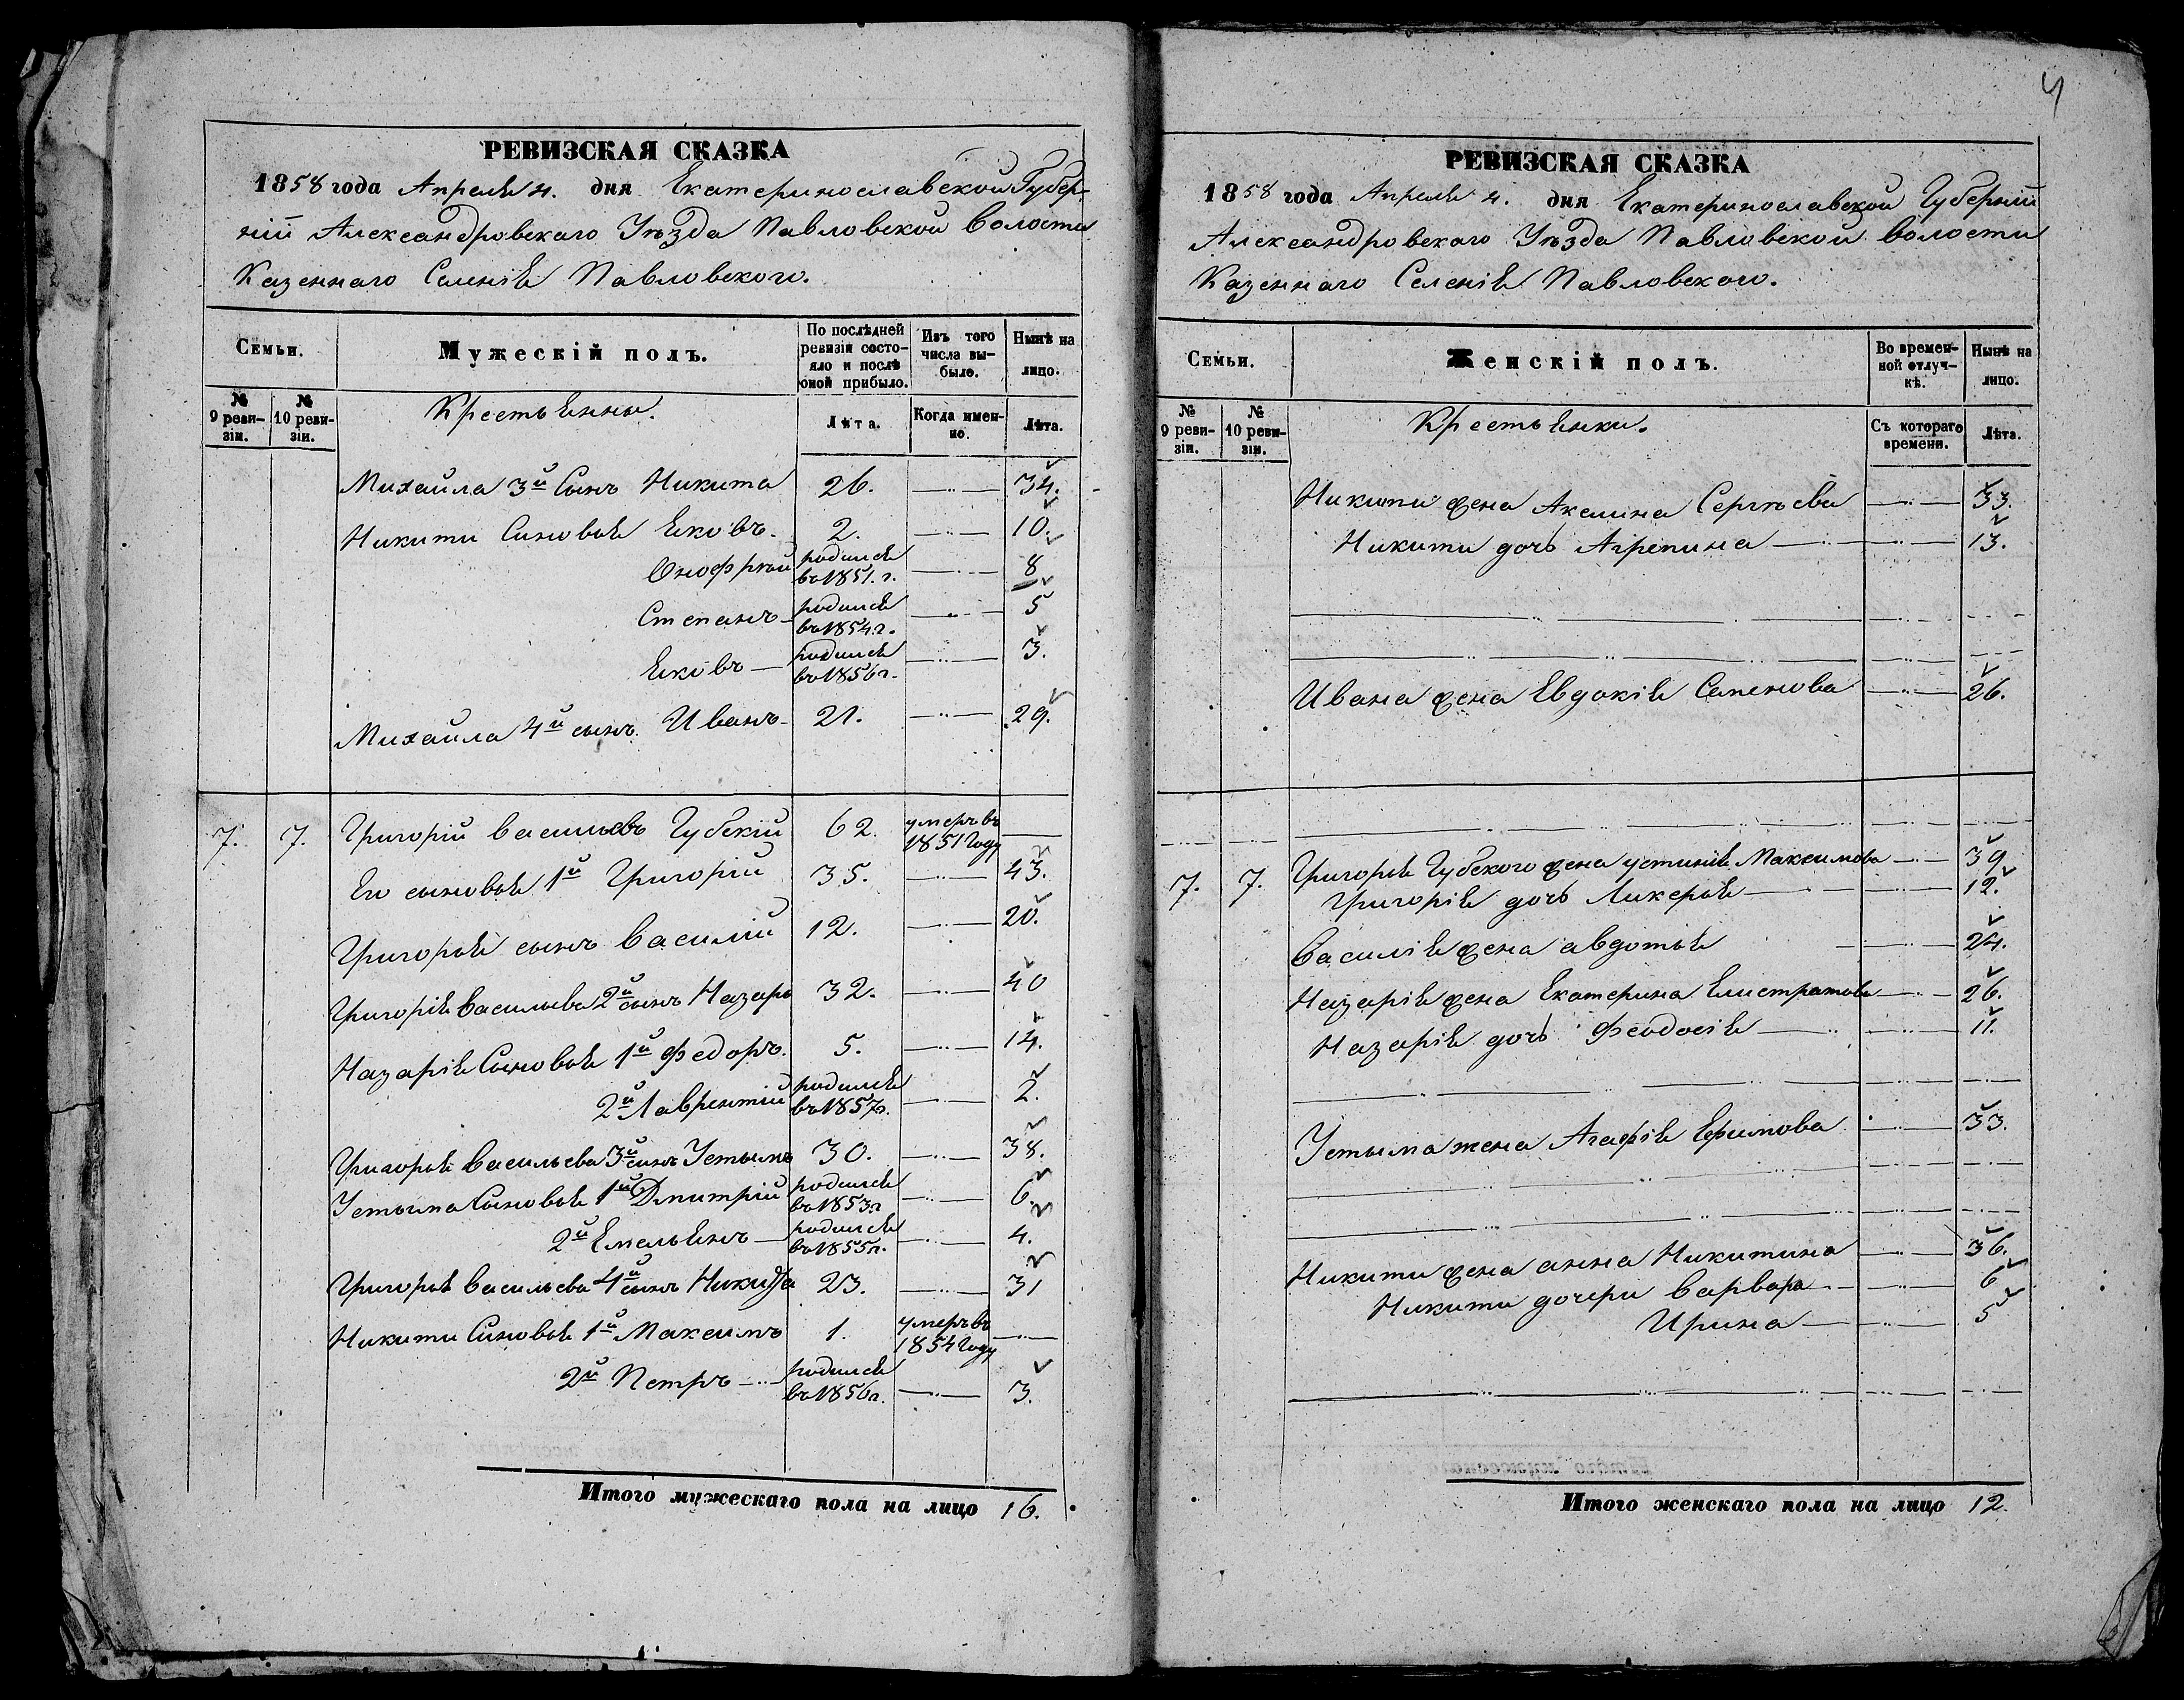 РЕВИЗСКАЯ СКАЗКА
1858 года Апреля 4. дня Екатеринославской Губер-
нии Александровскаго Уѣзда Павловской Волости
Казеннаго Селенія Павловского.
Семьи.
Мужескій полъ.
По послѣдней ревизіи состояло и послѣ оной прибыло.
Изъ того числа выбыло.
Нынѣ на лицо.
№ 9 ревизіи.
№ 10 ревизіи.
Крестьяны.
Лѣта.
Когда именно.
Лѣта.
Михайла 3й Сынъ Никита 26. 34.
Никити Синовья Яковъ. 2. 10.
Онофрѣй родился въ 1851. г. 8
Степанъ родился въ 1854. г. 5
Яковъ родился въ 1856 г. 3.
Михайла 4й сынъ Иванъ 21. 29.
7. 7. Григорій Васильевъ Губскій 62. умеръ въ 1851 Году
Его сыновья 1й Григорій 35. 43.
Григорья сынъ Василій 12. 20.
Григорія Васильева 2й сынъ Назаръ 32. 40
Назарія Сыновья 1й Федоръ. 5. 14.
2й Лаврентій родился въ 1857 г. 2.
Григорья Васильева 3й сынъ Устымъ 30. 38.
Устыма Сыновья 1й Дмитрій родился въ 1853 г. 6.
2й Емельянъ родился въ 1855 г. 4.
Григорья Васильева 4й сынъ Никита 23. 31
Никити Синовья 1й Максимъ 1. умеръ въ 1854 Году
2й Петръ родился въ 1856 г. 3.
Итого мужескаго пола на лицо 16.
4
РЕВИЗСКАЯ СКАЗКА
1858 года Апреля 4. дня Екатеринославской Губерніи
Александровскаго Уѣзда Павловской волости
Казеннаго Селенія Павловскаго.
Семьи.
Женскій полъ.
Во временной отлучкѣ.
Нынѣ на лицо.
№ 9 ревизіи.
№ 10 ревизіи.
Крестьянки.
Съ котораго времени.
Лѣта.
Никити жена Акелина Сергѣева 33.
Никити дочь Агрепина 13.
Ивана жена Евдокія Семенова 26.
7. 7. Григорья Губского жена устинія Максимова 39
Григорія дочь Ликерья 12.
Василія жена авдотья 24.
Назарія жена Екатерина Елистратова 26.
Назарія дочь Феодосія 11.
Устыма жена Агафія Ефимова 33.
Никити жена анна Никитина 36.
Никити дочери Варвара 6
Ирина 5
Итого женскаго пола на лицо 12.